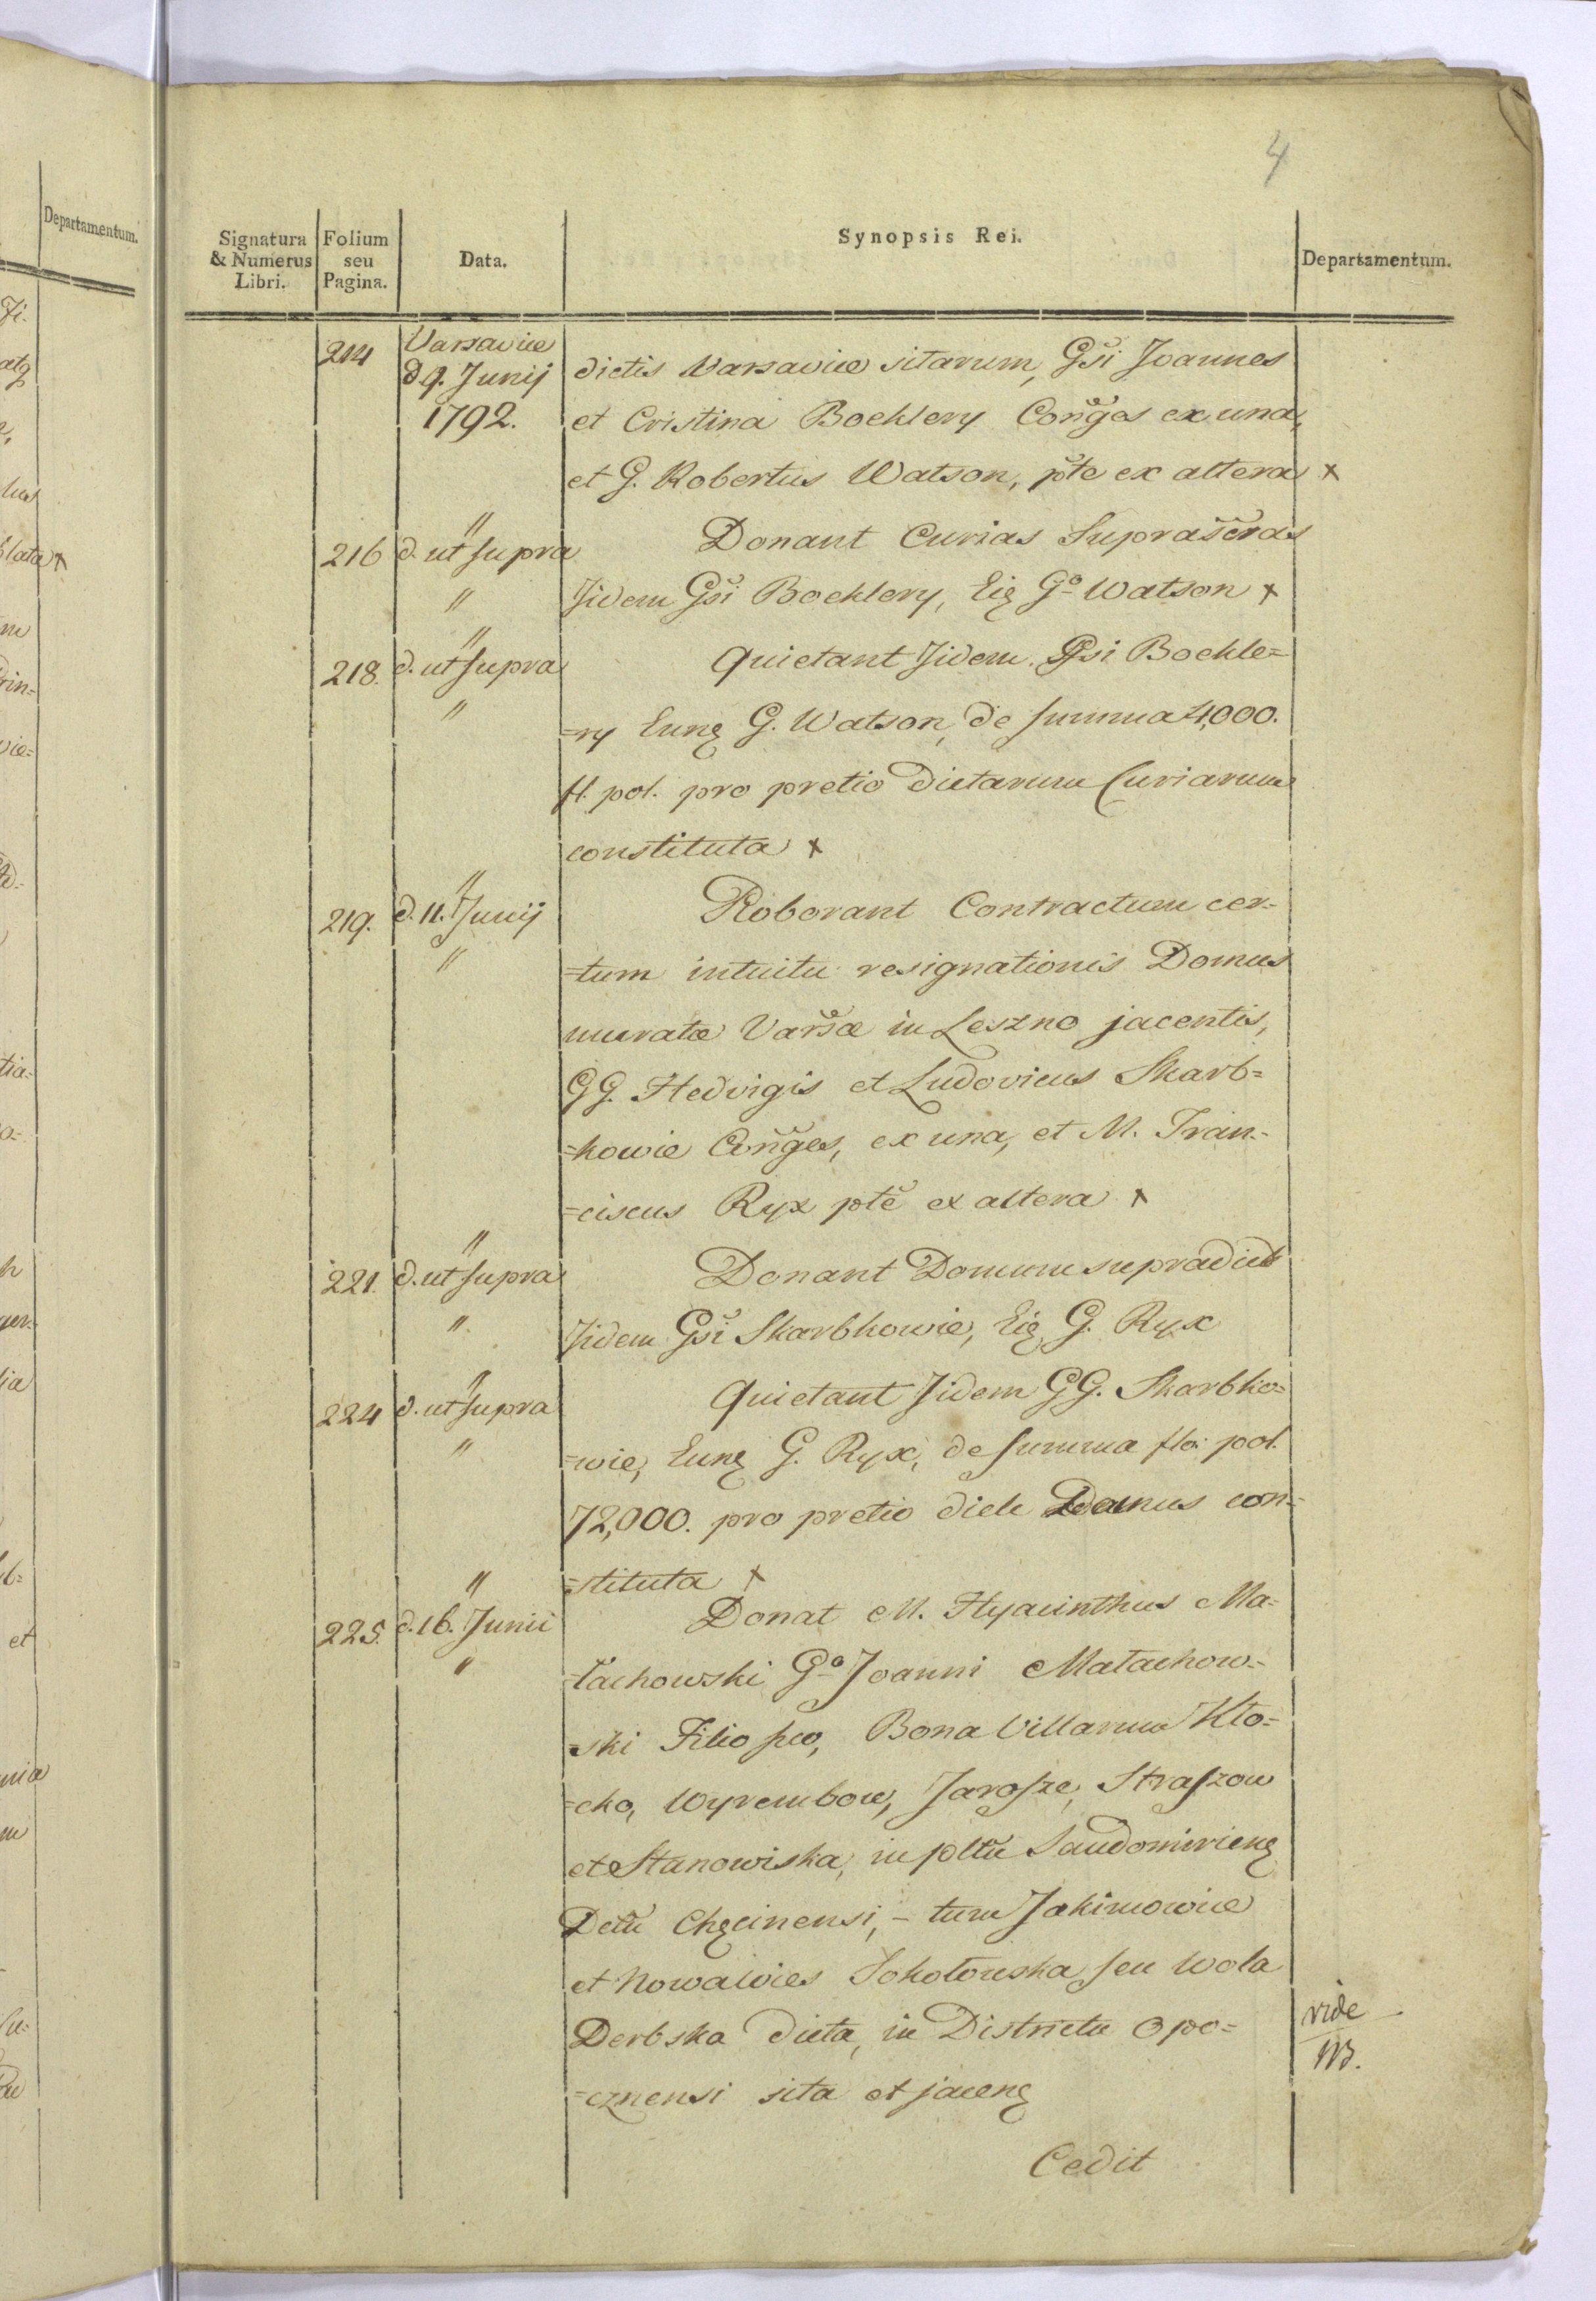 4
Departamentum.
Signatura & Numerus Libri. Folium seu Pagina. Data. Synopsis Rei. Departamentum.
214 Varsaviæ dictis Varsaviæ sitarum, Gsi Joannes
d 9. Junij
1792. et Cristina Boeklery Conges ex una,
et G. Robertus Watson, pte ex altera x
"
216 d. ut supra Donant Curias Suprascras
" Jidem Gsi Boeklery, Eiq Go Watson x
"
218. d. ut supra Quietant Jidem Gsi Boekle=
" =ry Eunq G. Watson, de summa 4,000.
fl. pol. pro pretio dictarum Curiarum
constituta x
"
219. d. 11. Junij Roborant Contractum cer=
" =tum intuitu resignationis Domus
muratæ Varsæ in Leszno jacentis,
GG. Hedvigis et Ludovicus Skarb=
=kowie Conges, ex una, et M. Fran=
=ciscus Ryx pte ex altera x
"
221. d. ut supra Donant Domum supradict
" Jidem Gsi Skarbkowie, Eiq G. Ryx
"
224 d. ut supra Quietant Jidem GG. Skarbko=
" =wie, Eunq G. Ryx, de summa flo: pol.
72,000. pro pretio dictæ Domus con=
" =stituta x
225. d. 16. Junii Donat M. Hyacinthus Ma=
" =łachowski Go Joanni Małachow=
=ski Filio suo, Bona Villarum Kło=
=cko, Wyrembow, Jarosze, Straszow
et Stanowiska, in pltu Sandomirienq
Dctu Chęcinensi, - tum Jakimowice
et Nowawies Sokołowska seu Wola
Derbska dicta, in Districtu Opo= vide
=cznensi sita et jacenq NB.
Cedit